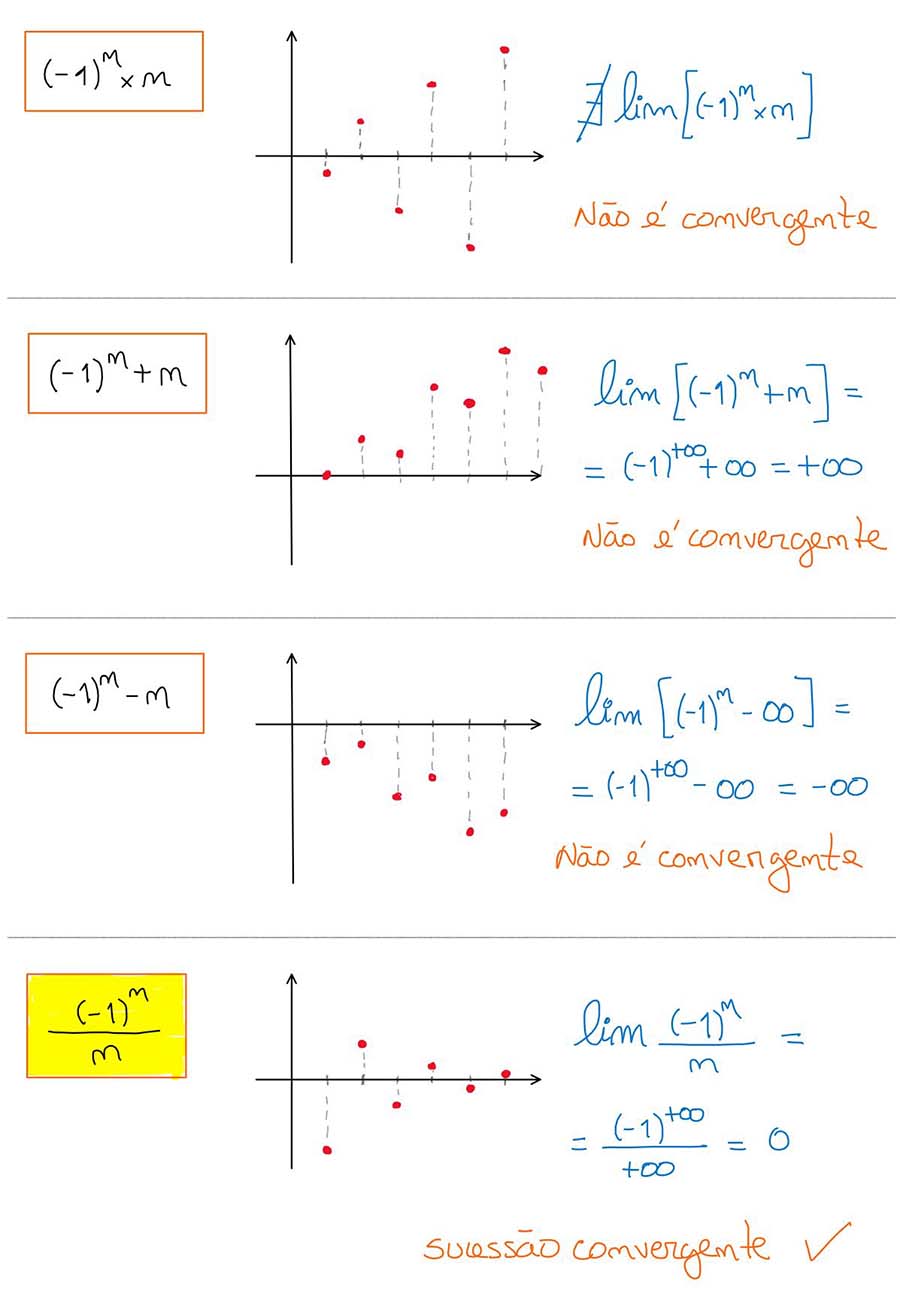 (-1)^n × n
∄ lim [(-1)^n × n]
Não é convergente
(-1)^n + n
lim [(-1)^n + n] =
= (-1)^+∞ + ∞ = +∞
Não é convergente
(-1)^n - n
lim [(-1)^n - ∞] =
= (-1)^+∞ - ∞ = -∞
Não é convergente
(-1)^n / n
lim (-1)^n / n =
= (-1)^+∞ / +∞ = 0
sucessão convergente ✓